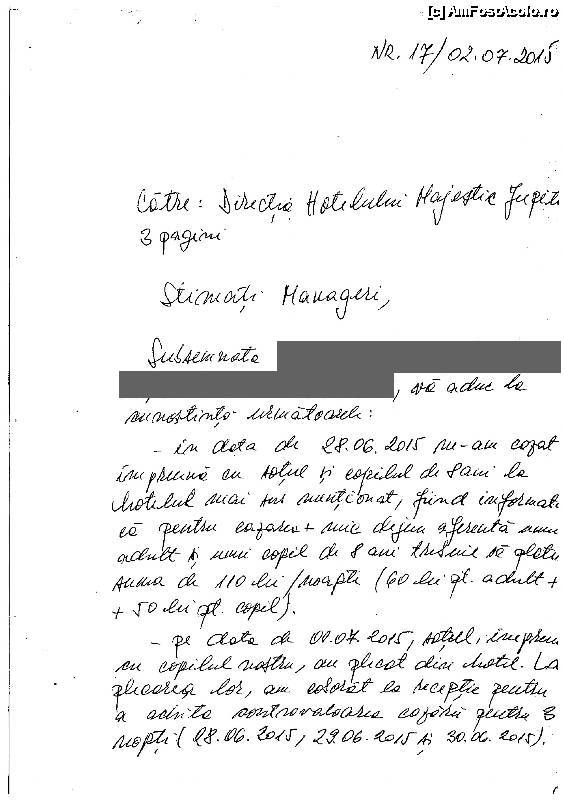 [c] AmFostAcolo.ro
NR. 17/02.07.2015
Către: Direcția Hotelului Majestic Jupite
3 pagini
Stimați Manageri,
Subsemnata
, vă aduc la
cunoștință următoarele:
- în data de 28.06.2015 m-am cazat
împreună cu soțul și copilul de 8 ani la
hotelul mai sus menționat, fiind informată
că pentru cazarea + mic dejun aferentă unui
adult și unui copil de 8 ani trebuie să plătim
suma de 110 lei/noapte (60 lei pt. adult +
+ 50 lei pt. copil).
- pe data de 01.07.2015, soțul, împreun
cu copilul nostru, au plecat din hotel. La
plecarea lor, am coborât la recepție pentru
a achita contravaloarea cazării pentru 3
nopți (28.06.2015, 29.06.2015 și 30.06.2015).